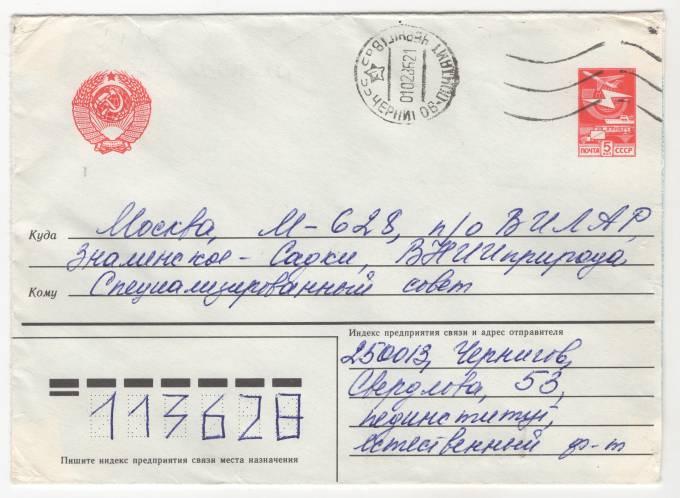 ЧЕРНІГІВ ПОШТАМТ
СССР ЧЕРНИГОВ
01028521
ПОЧТА 5 СССР
Куда Москва, М-628, п/о ВИЛАР,
Знаменское-Садки, ВНИИприрода
Кому Специализированный совет
Индекс предприятия связи и адрес отправителя
250013, Чернигов,
Свердлова, 53,
пединститут,
естественный ф-т
113628
Пишите индекс предприятия связи места назначения